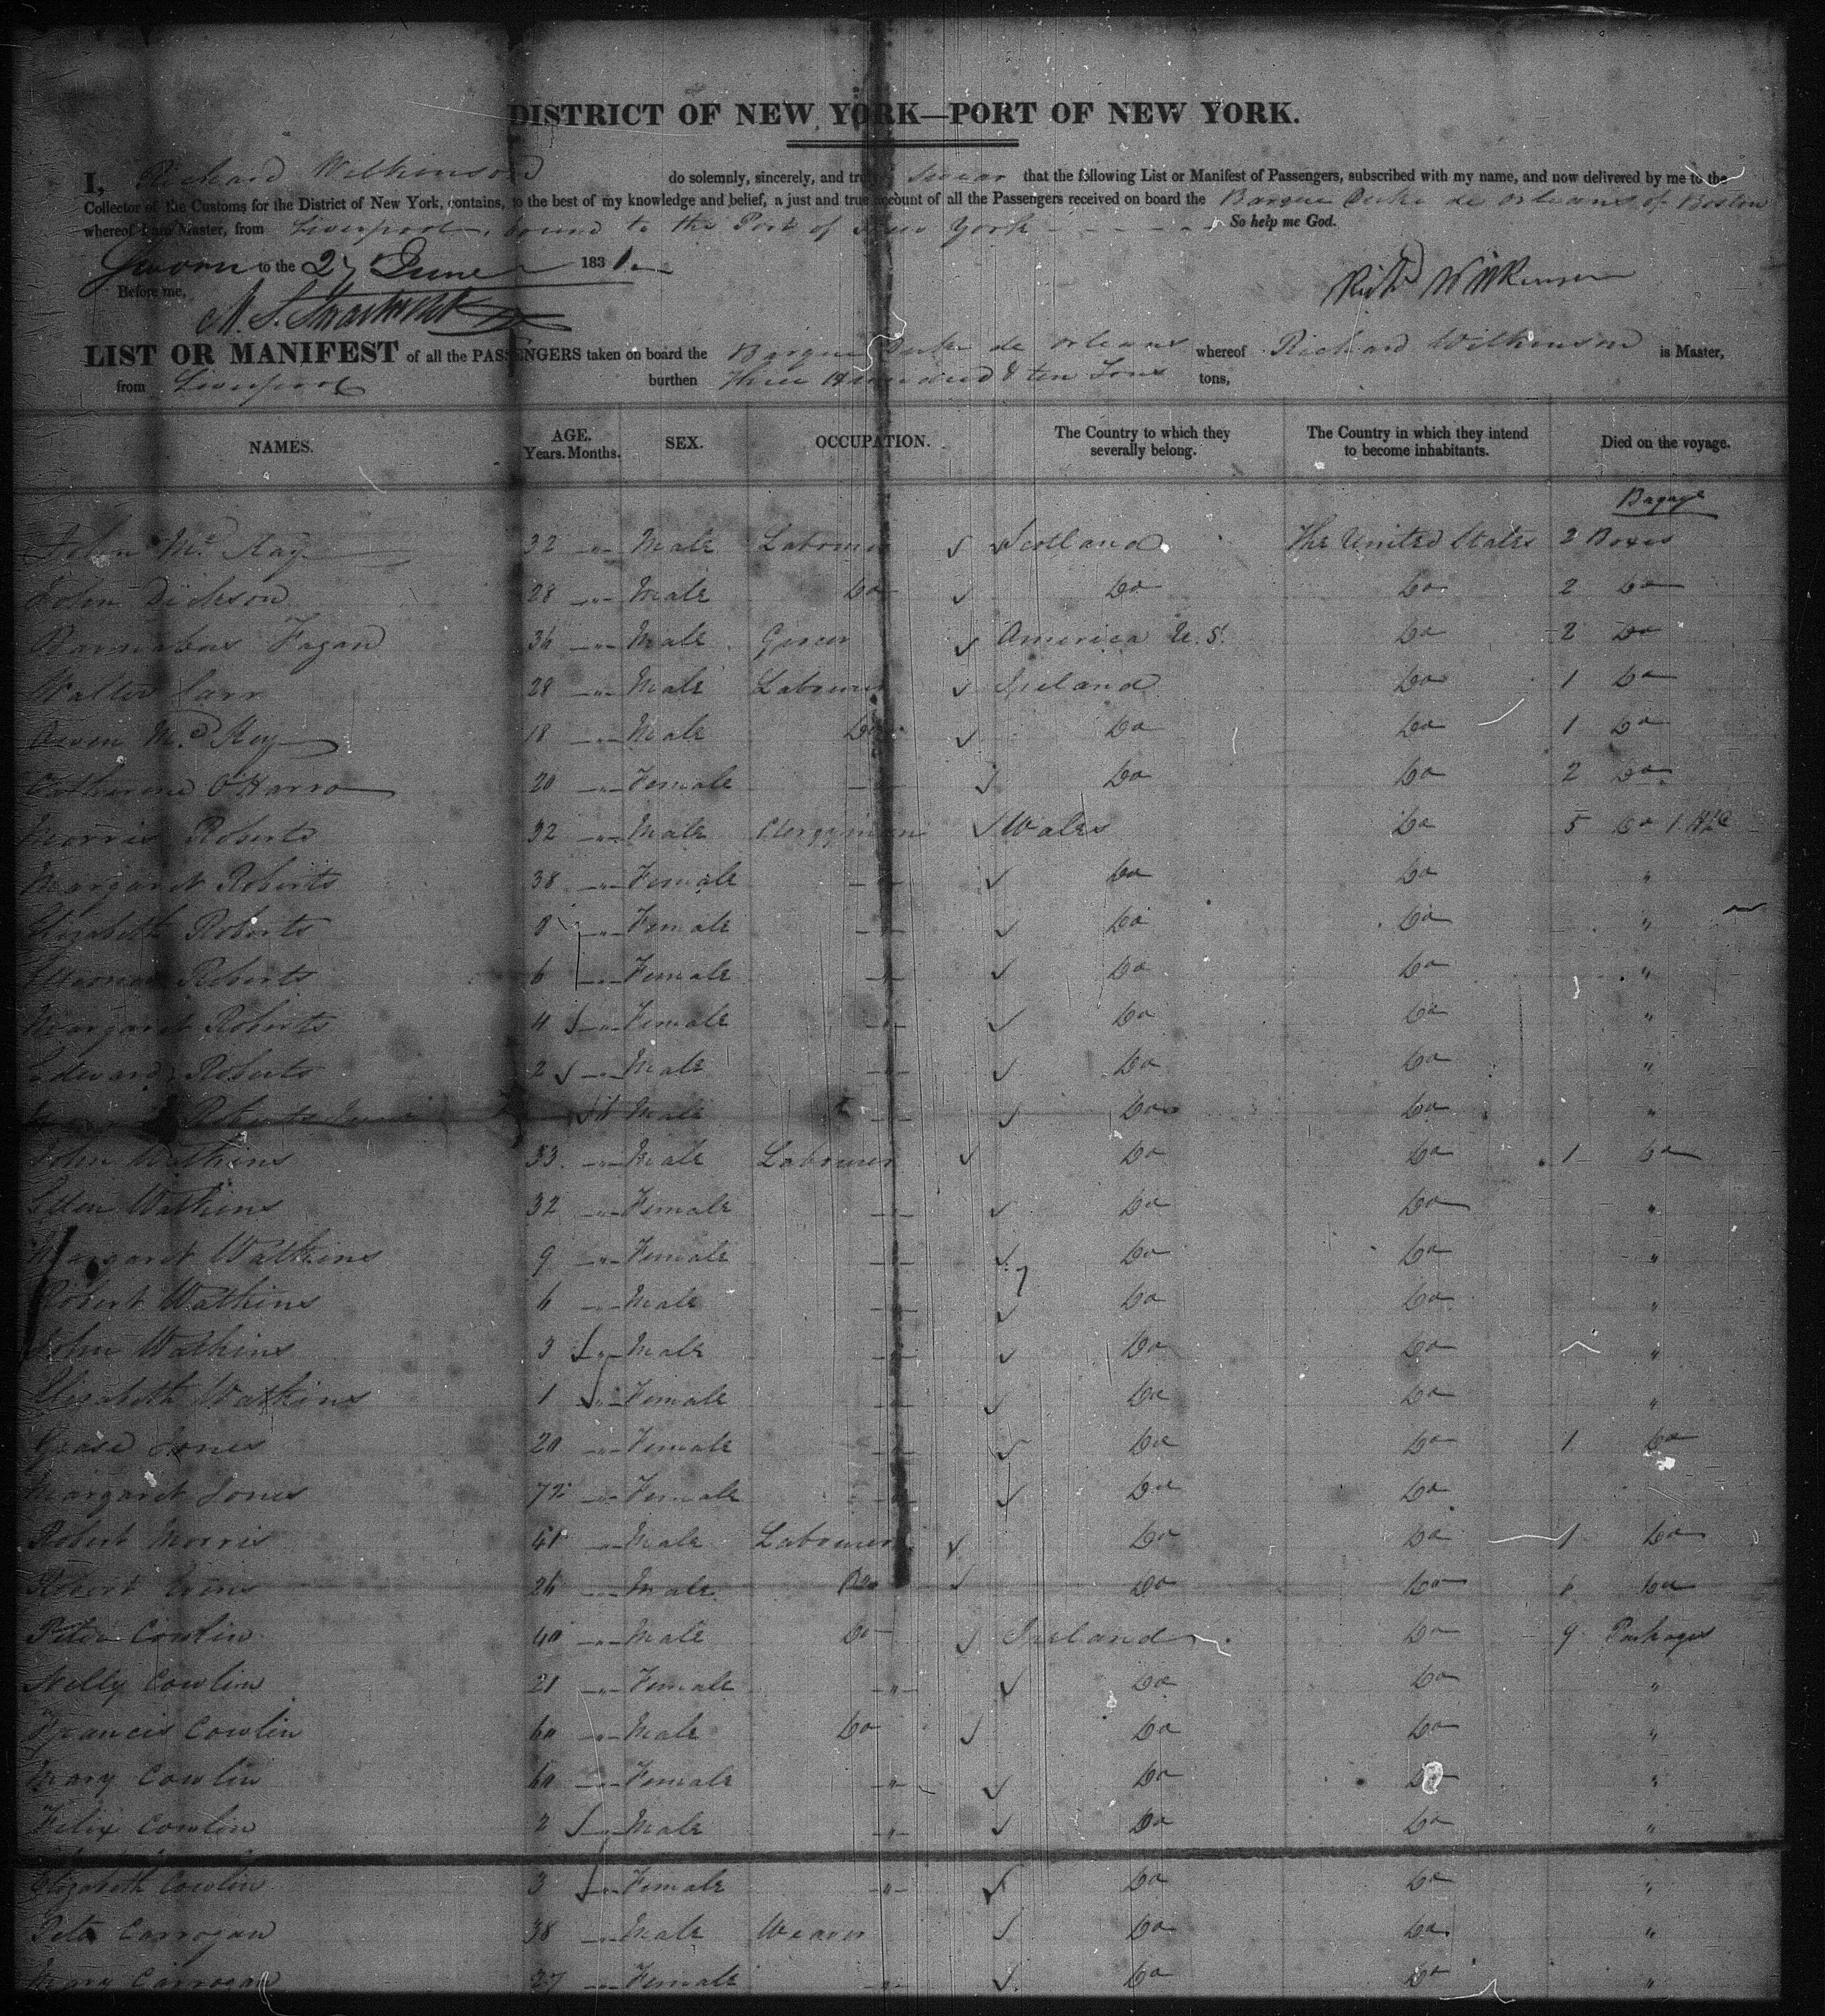 DISTRICT OF NEW YORK—PORT OF NEW YORK.
I, Richard Wilkinson do solemnly, sincerely, and truly swear that the following List or Manifest of Passengers, subscribed with my name, and now delivered by me to the
Collector of the Customs for the District of New York, contains, to the best of my knowledge and belief, a just and true account of all the Passengers received on board the Barque Duke de Orleans of Boston
whereof I am Master, from Liverpool, bound to the Port of New York - - - - - - So help me God.
Sworn to the 27 June 1831.
Before me,
Richd Wilkinson
LIST OR MANIFEST of all the PASSENGERS taken on board the Barque Duke de Orleans whereof Richard Wilkinson is Master,
from Liverpool burthen Three Hundred & ten Tons tons,
NAMES. AGE. Years. Months. SEX. OCCUPATION. The Country to which they severally belong. The Country in which they intend to become inhabitants. Died on the voyage.
Bagage
John Mc Kay 32 " Male Labourer Scotland The United States 2 Boxes
John Dickson 28 " Male Do Do Do 2 Do
Barnabas Fagan 36 " Male Grocer America U.S. Do 2 Do
Walter Carr 28 " Male Labourer Ireland Do 1 Do
Owen Mc Key 18 " Male Do Do Do 1 Do
Catherine O'Harro 20 " Female " Do Do 2 Do
Morris Roberts 32 " Male Clergyman Wales Do 5 Do 1
Margaret Roberts 38 " Female " Do Do "
Elizabeth Roberts 8 " Female " Do Do "
Elleonor Roberts 6 " Female " Do Do "
Margaret Roberts 4 " Female " Do Do "
Edward Roberts 2 " Male " Do Do "
Roberts Male " Do Do "
John Watkins 33 " Male Labourer Do Do 1 Do
Ellen Watkins 32 " Female " Do Do "
Margaret Watkins 9 " Female " Do Do "
Robert Watkins 6 " Male " Do Do "
John Watkins 3 " Male " Do Do "
Elizabeth Watkins 1 " Female " Do Do "
Grase Jones 20 " Female " Do Do 1 Do
Margaret Jones 72 " Female " Do Do
Robert Morris 41 " Male Labourer Do Do 1 Do
Robert Evins 26 " Male Do Do Do Do
Peter Cowlin 40 " Male Do Ireland Do 9 Packages
Nelly Cowlin 21 " Female " Do Do "
Francis Cowlin 60 " Male Do Do Do "
Mary Cowlin 60 " Female " Do Do "
Felix Cowlin 2 " Male " Do Do "
Elizabeth Cowlin 3 " Female " Do Do "
Peter Carrogan 38 " Male Weaver Do Do "
Mary Carrogan 27 " Female " Do Do "